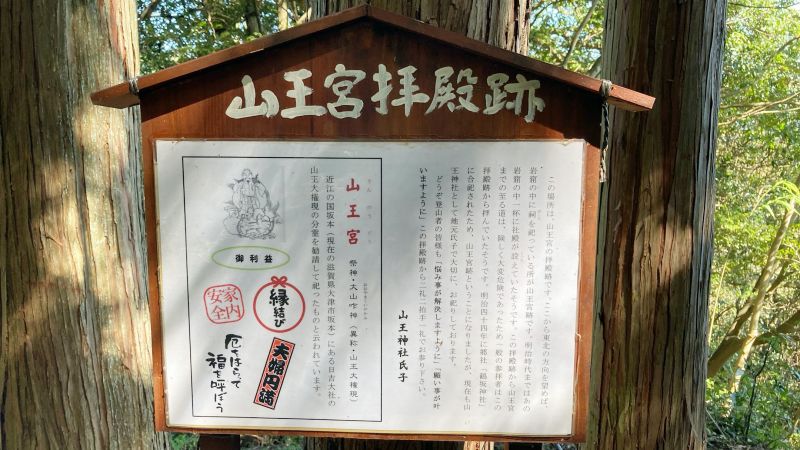 山王宮拝殿跡
この場所は、山王宮の拝殿跡です。ここから東北の方向を望めば、
岩窟の中に祠を祀っている所が山王宮跡です。明治時代まではあの
岩窟の中一杯に社殿が設えていたそうです。この拝殿跡から山王宮
までの至る道は、険しく大変危険であったため一般の参拝者はこの
拝殿跡から拝んでいたそうです。明治四十四年に郷社「鶴坂神社」
に合祀されたため、山王宮跡ということになりましたが、現在も山
王神社として地元氏子で大切に、お祀りしております。
どうぞ登山者の皆様も「悩み事が解決しますように」「願い事が叶
いますように」この拝殿跡から二礼二拍手一礼でお参り下さい。
山王神社氏子
山王宮
さんのうぐう
祭神・大山咋神(異称・山王大権現)
近江の国坂本(現在の滋賀県大津市坂本)にある日吉大社の
山王大権現の分霊を勧請して祀ったものと云われています。
御利益
縁結び
家内安全
夫婦円満
厄をはらって
福を呼ぼう